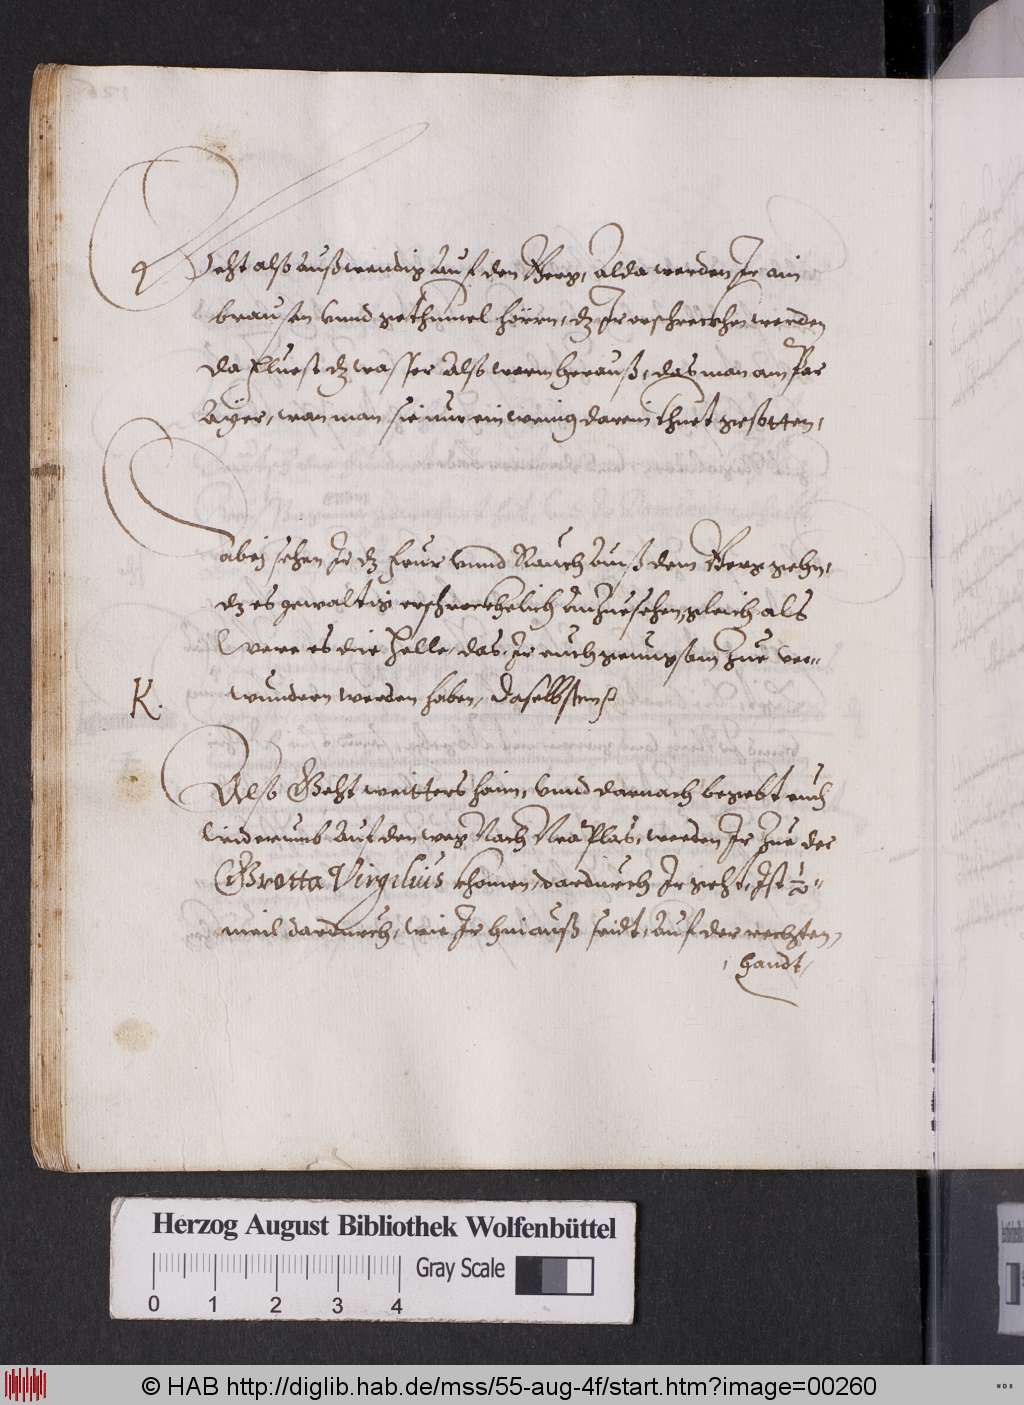 Geht alß außwendig auf den Berg, alda werden Ir ain
brausen vnnd gethümel hörrn, dz Ir erschreckhen werden
da fluest dz wasser alß warm herauß, das man ain Par
Aÿer, wan man sie nur ein wenig darein thuet gesotten,
Dabeÿ sehen Ir dz feur vnnd Rauch auß dem Berg gehn,
dz es gewaltig erschreckhelich anzuesehen, gleich als
Were es die Helle, das Ir euch genuegsam zue ver-
K.
wundern werden haben, daselbsten
Alß Geht weitters haim, vnnd darnach begebt euch
widerumb auf den weg Nach Neaplas, werden Ir zue der
Grotta Virgilius khomen, dardurch Ir geht, Ist ½
meil dardurch, wie Ir hinauß seidt, auf der rechten
handt,
Herzog August Bibliothek Wolfenbüttel
Gray Scale
0 1 2 3 4
© HAB http://diglib.hab.de/mss/55-aug-4f/start.htm?image=00260